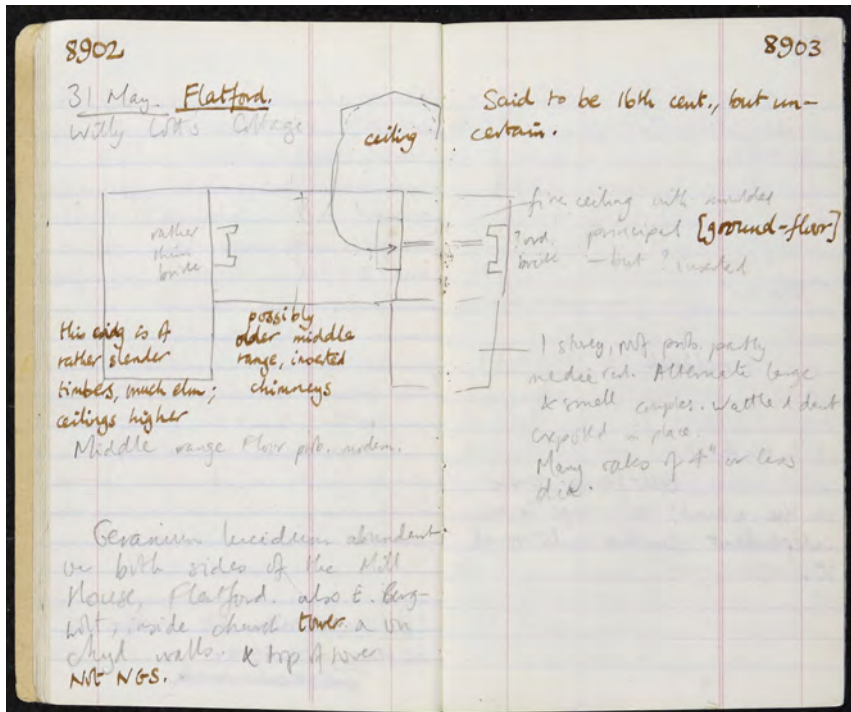 8902
31 May. Flatford.
Willy Lott's Cottage
ceiling
rather
thin
brick
this end is of
rather slender
timbers, much elm;
ceilings higher
possibly
older middle
range, inserted
chimneys
Middle range floor prob. modern.
Geranium lucidum abundant
on both sides of the Mill
House, Flatford. also E. Berg-
holt, inside church tower & on
chyd walls. & top of tower
Not NGS.
8903
Said to be 16th cent., but un-
certain.
fine ceiling with moulded
principal [ground-floor]
?ord.
brick – but ? inserted
1 storey, roof prob. partly
mediev. Alternate large
& small couples. Wattle & daub
exposed in place.
Many oaks of 4" or less
dia.